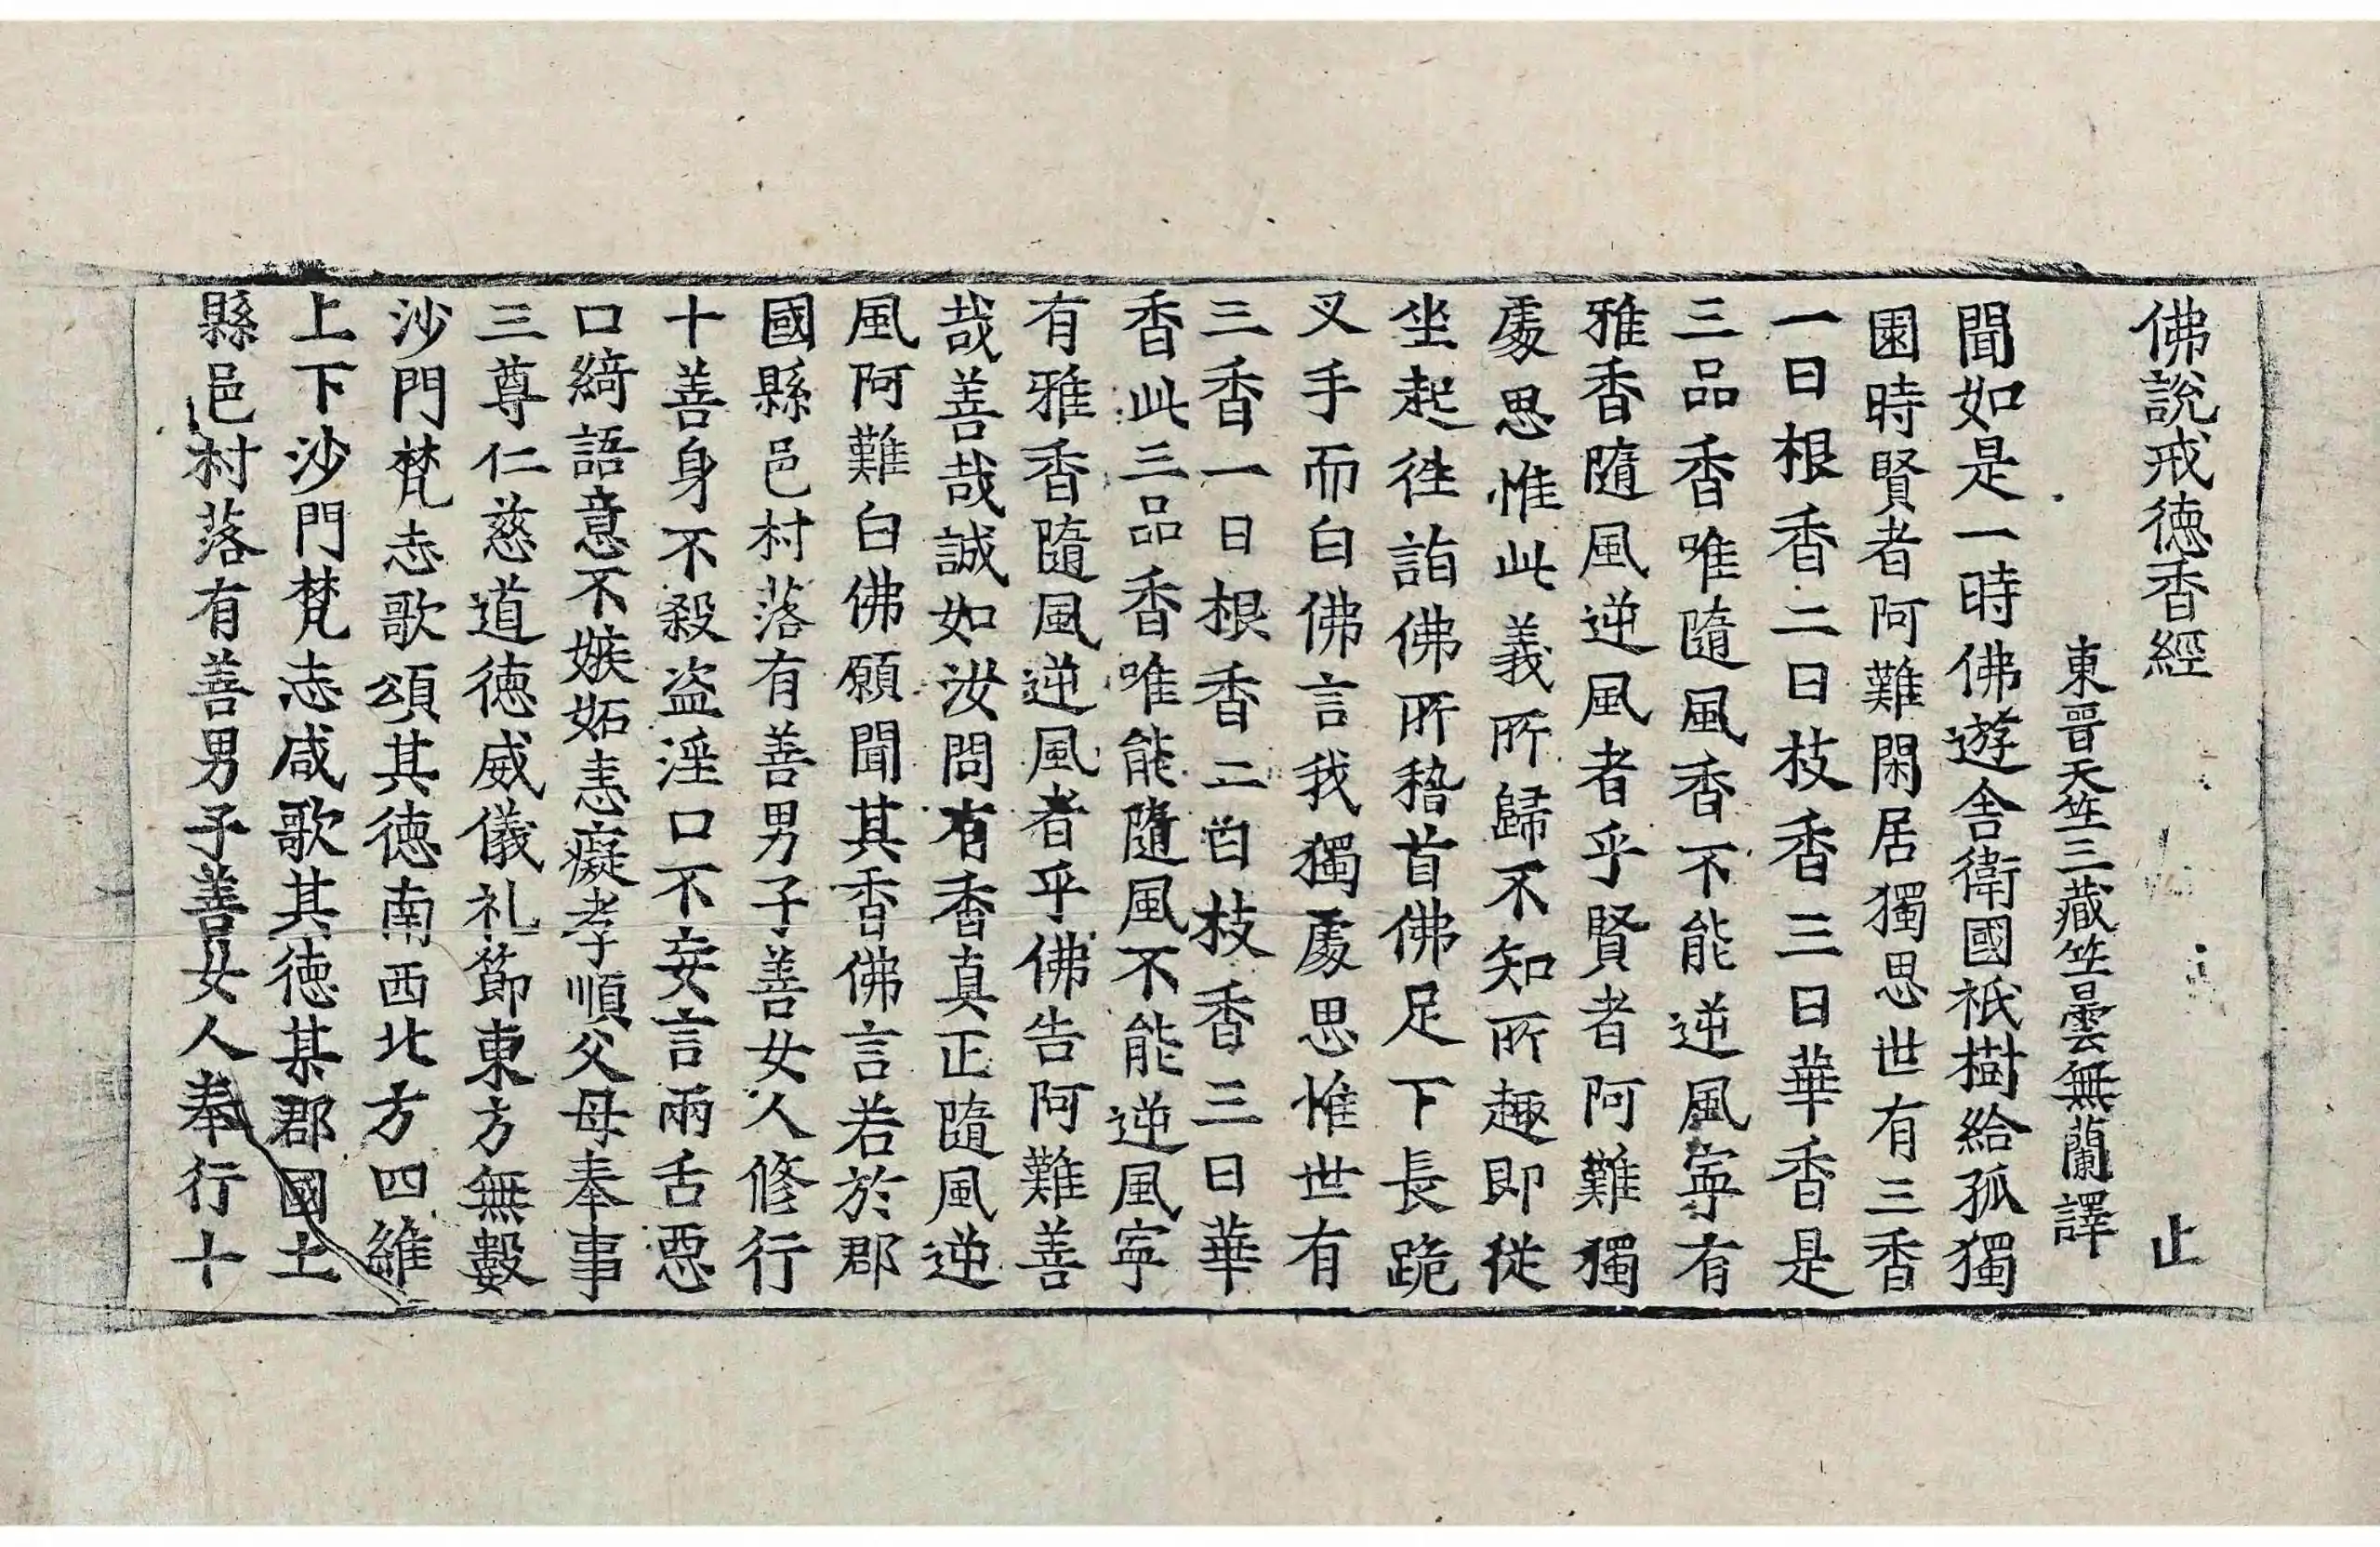 佛說戒徳香經 止
東晉天竺三藏竺曇無蘭譯
聞如是一時佛遊舍衛國祇樹給孤獨
園時賢者阿難閑居獨思世有三香
一曰根香二曰枝香三曰華香是
三品香唯隨風香不能逆風寧有
雅香隨風逆風者乎賢者阿難獨
處思惟此義所歸不知所趣即從
坐起往詣佛所稽首佛足下長跪
叉手而白佛言我獨處思惟世有
三香一曰根香二曰枝香三曰華
香此三品香唯能隨風不能逆風寧
有雅香隨風逆風者乎佛告阿難善
哉善哉誠如汝問有香真正隨風逆
風阿難白佛願聞其香佛言若於郡
國縣邑村落有善男子善女人修行
十善身不殺盗淫口不妄言兩舌惡
口綺語意不嫉妬恚癡孝順父母奉事
三尊仁慈道徳威儀礼節東方無數
沙門梵志歌頌其徳南西北方四維
上下沙門梵志咸歌其徳某郡國土
縣邑村落有善男子善女人奉行十